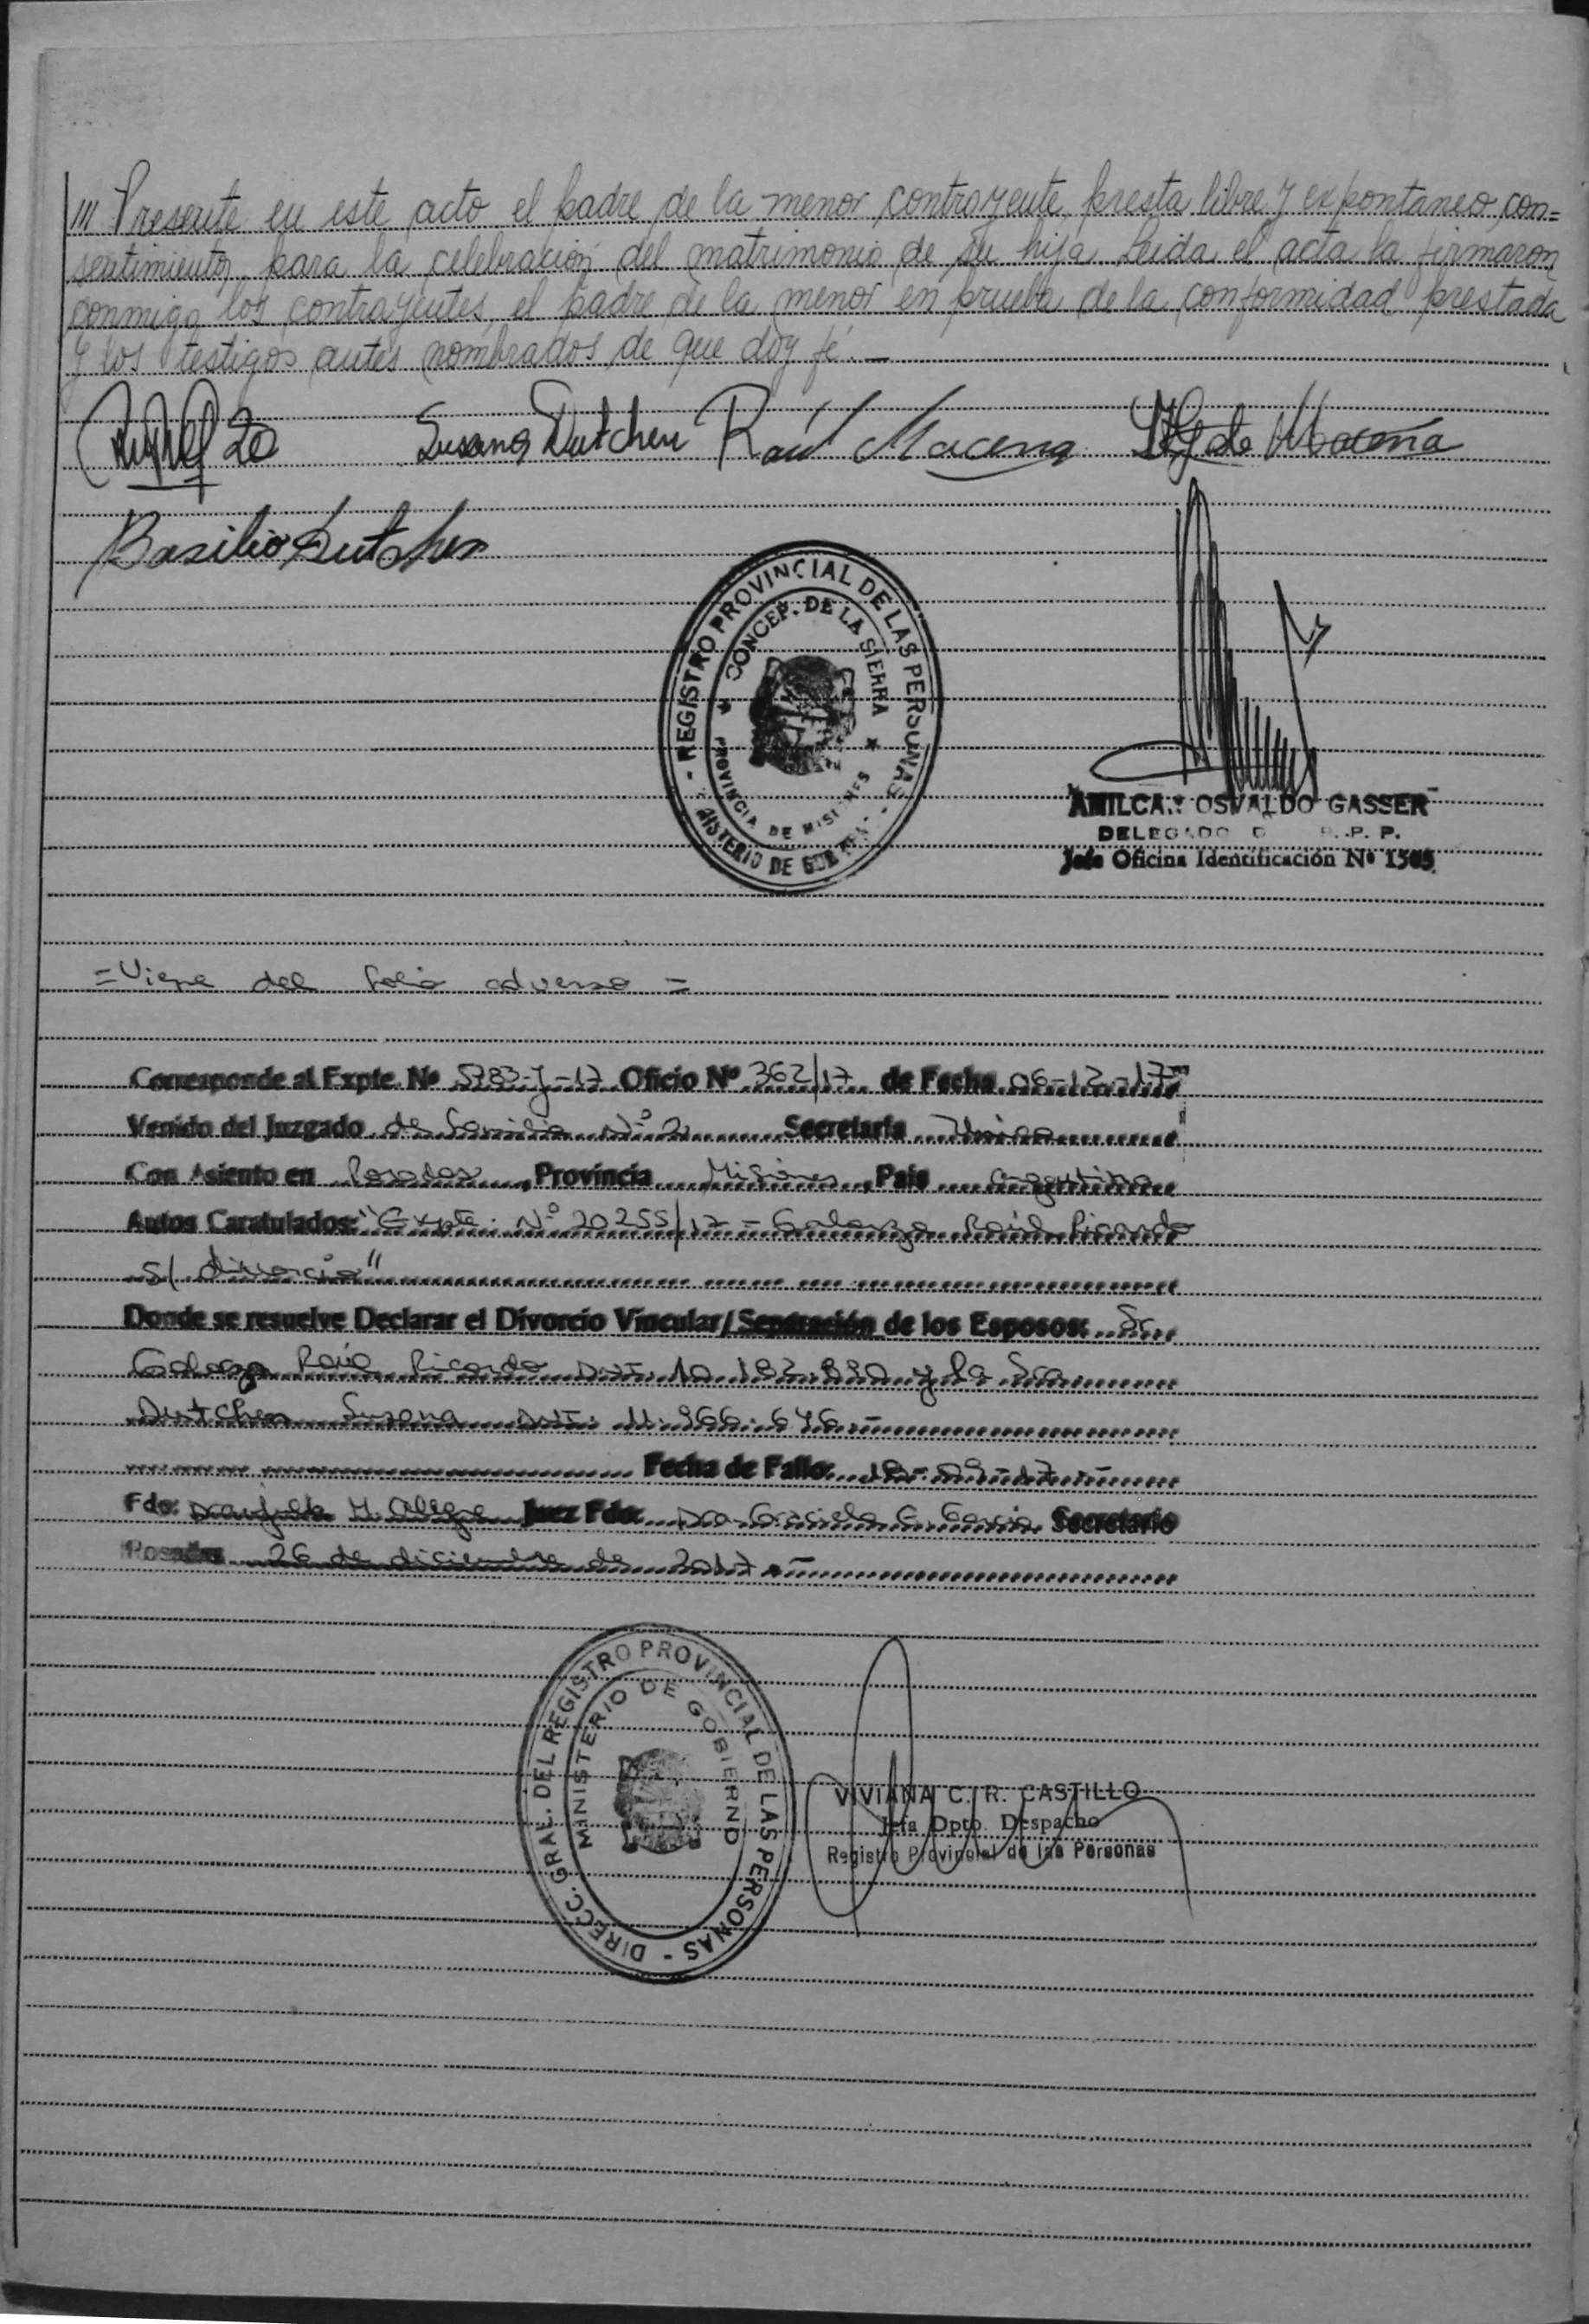 /// Presente en este acto el padre de la menor contrayente, presta libre y expontaneo con=
sentimiento, para la celebración del matrimonio de su hija. Leida el acta la firmaron
conmigo los contrayentes, el padre de la menor en prueba de la conformidad prestada
y los testigos antes nombrados de que doy fé.—
Susana Dutchen Raúl Macena de Macena
Basilio Dutchen
- REGISTRO PROVINCIAL DE LAS PERSONAS -
CONCEP. DE LA SIERRA
PROVINCIA DE MISIONES
AMILCAR OSVALDO GASSER
DELEGADO D R.P.P.
Jefe Oficina Identificación Nº 1505
= Viene del folio adverso =
Corresponde al Expte. Nº 5783-J-17 Oficio Nº 362/17 de Fecha 06-12-17
Venido del Juzgado de Familia Nº 2 Secretaría Unica
Con Asiento en Posadas, Provincia Misiones, País Argentina
Autos Caratulados: "Expte. Nº 20255/17 = Galarza Raúl Ricardo
s/ divorcio"
Donde se resuelve Declarar el Divorcio Vincular/Separación de los Esposos: Sr.
Galarza Raúl Ricardo DNI: y la Sra
Dutchen Susana DNI: 11.966.646.-
Fecha de Fallo: -09-17.-
Fdo: M. Juez Fdo: Dra. Graciela García Secretario
Posadas 26 de diciembre de 2017.-
DIRECC. GRAL. DEL REGISTRO PROVINCIAL DE LAS PERSONAS -
MINISTERIO DE GOBIERNO
VIVIANA C. R. CASTILLO
Jefa Dpto. Despacho
Registro Provincial de las Personas